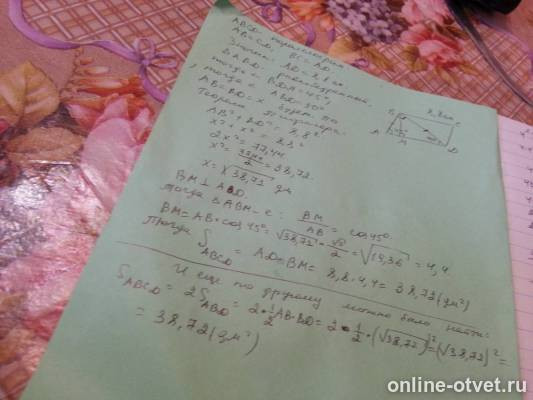 ABCD параллелограмм
AB=CD, BC=AD
Значит AD=8,8 дм
ΔABD
тогда
тогда ABD=90°
AB=BD=x
Теорема Пифагора:
AB²+BD²=8,8²
x²+x²=8,8²
2x²=77,44
x²=77,44/2=38,72
x=√38,72 дм
BM⊥AD,
тогда в ΔABM-е: BM/AB=cos45°
BM=AB·cos45°=√38,72·√2/2=√19,36=4,4
Тогда S ABCD=AD·BM=8,8·4,4=38,72(дм²)
И еще по другому можно было найти:
S ABCD=2S ABD=2·1/2AB·BD=2·1/2·(√38,72)²=(√38,72)²=
=38,72(дм²)
B 8,8 дм
A M D
45°
online-otvet.ru